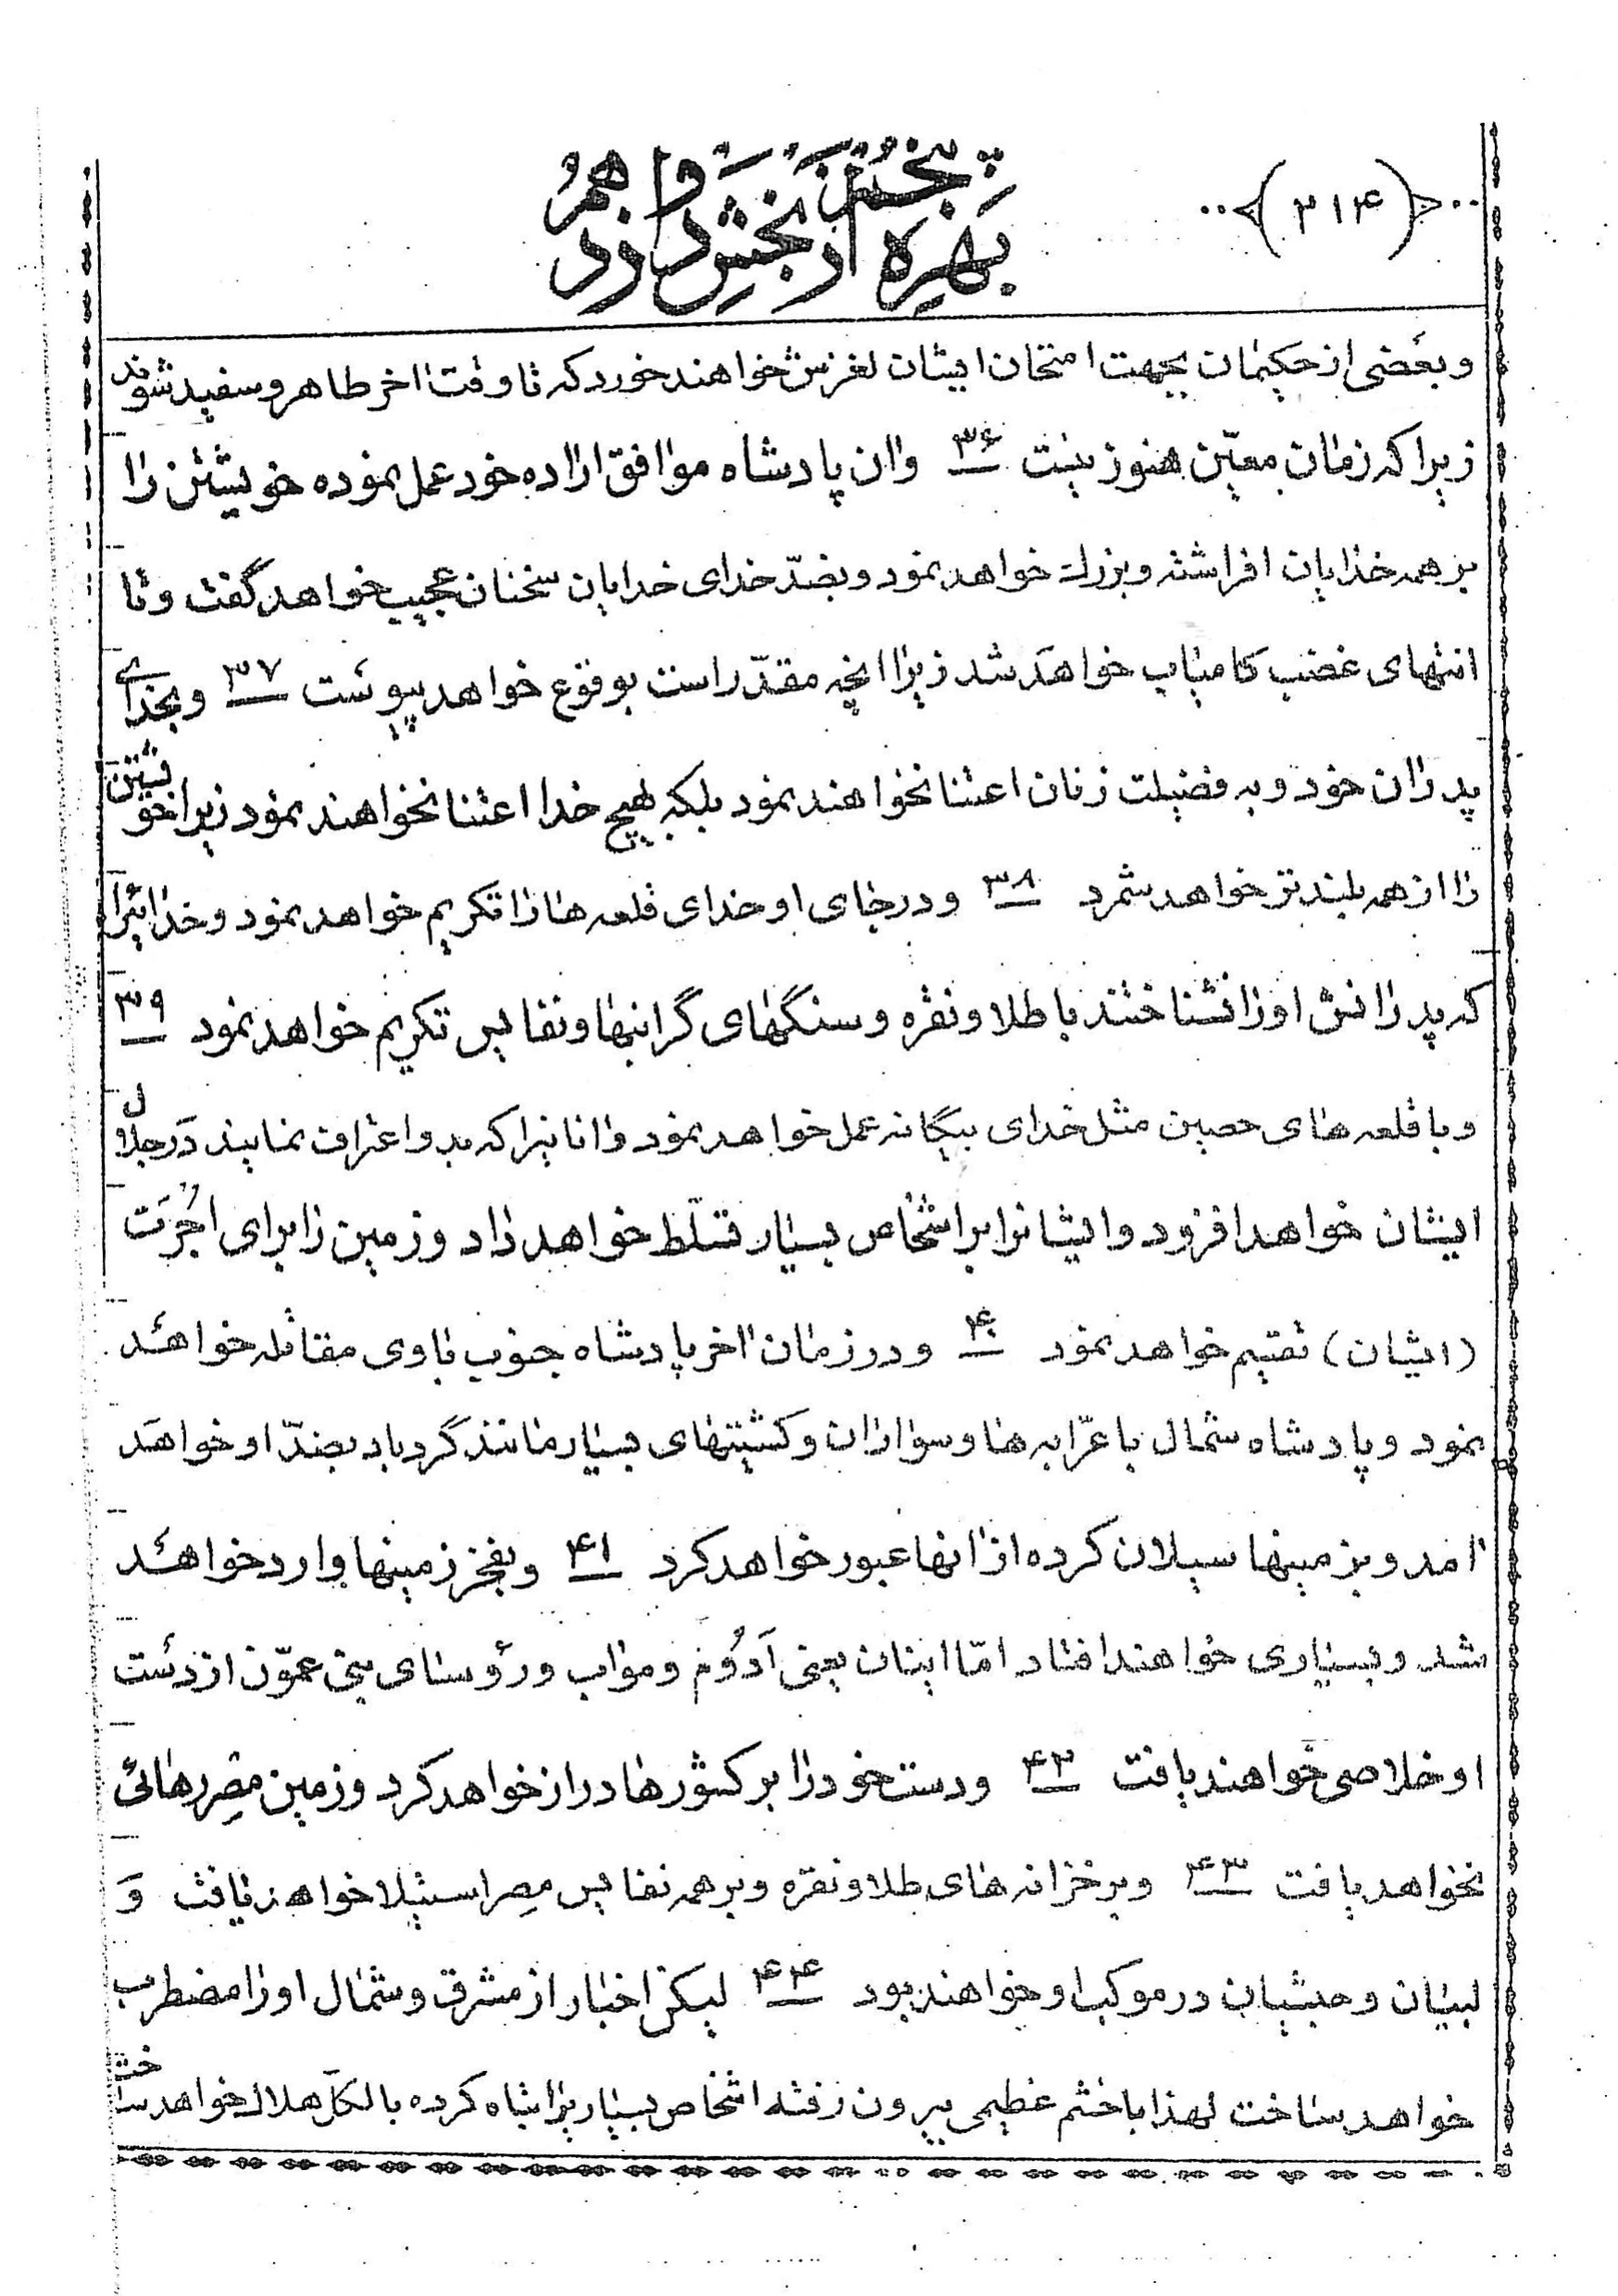 ﴿۳۱۴﴾
پنجمین بهره از بخش دوازدهم
و بعضی از حکیمان بجهت امتحان ایشان لغزش خواهند خورد که تا وقت اخر طاهر و سفید شوند
زیرا که زمان معیّن هنوز نیست ۳۶ و ان پادشاه موافق اراده خود عمل نموده خویشتن را
بر همه خدایان افراشته و بزرك خواهد نمود و بضدّ خدای خدایان سخنان عجیب خواهد گفت و تا
انتهای غضب کامیاب خواهد شد زیرا انچه مقدّر است بوقوع خواهد پیوست ۳۷ و بخدای
پدران خود و به فضیلت زنان اعتنا نخواهند نمود بلکه بهیچ خدا اعتنا نخواهند نمود زیرا خویشتن
را از همه بلندتر خواهد شمرد ۳۸ و در جای او خدای قلعه ها را تکریم خواهد نمود و خدائیرا
که پدرانش او را نشناختند با طلا و نقره و سنگهای گرانبها و نفایس تکریم خواهد نمود ۳۹
و با قلعه های حصین مثل خدای بیگانه عمل خواهد نمود و انانیرا که بدو اعتراف نمایند در جلال
ایشان خواهد افزود و ایشانرا بر اشخاص بسیار تسلّط خواهد داد و زمین را برای اجرت
(ایشان) تقسیم خواهد نمود ۴۰ و در زمان اخر پادشاه جنوب با وی مقاتله خواهد
نمود و پادشاه شمال با عرّابه ها و سواران و کشتیهای بسیار مانند گردباد بضدّ او خواهد
امد و بزمینها سیلان کرده از انها عبور خواهد کرد ۴۱ و بفخر زمینها وارد خواهد
شد و بسیاری خواهند افتاد امّا اینان یعنی اَدُوُم و مواب و رؤسای بنی عمّون از دست
او خلاصی خواهند یافت ۴۲ و دست خود را بر کشورها دراز خواهد کرد و زمین مِصر رهائی
نخواهد یافت ۴۳ و بر خزانه های طلا و نقره و بر همه نفایس مِصر استیلا خواهد یافت و
لبیان و حبشیان در موکب او خواهند بود ۴۴ لیکن اخبار از مشرق و شمال او را مضطرب
خواهد ساخت لهذا با خشم عظیمی بیرون رفته اشخاص بسیاریرا تباه کرده بالکلّ هلاك خواهد ساخت